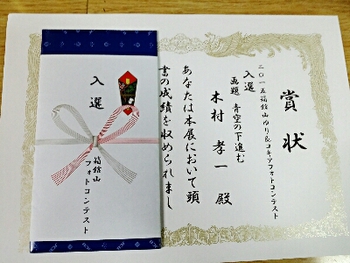 賞状
二〇一五箱館山ゆり&コキアフォトコンテスト
入選
画題 青空の下進む
木村孝一 殿
あなたは本展において頭
書の成績を収められまし
入選
箱館山
フォトコンテスト